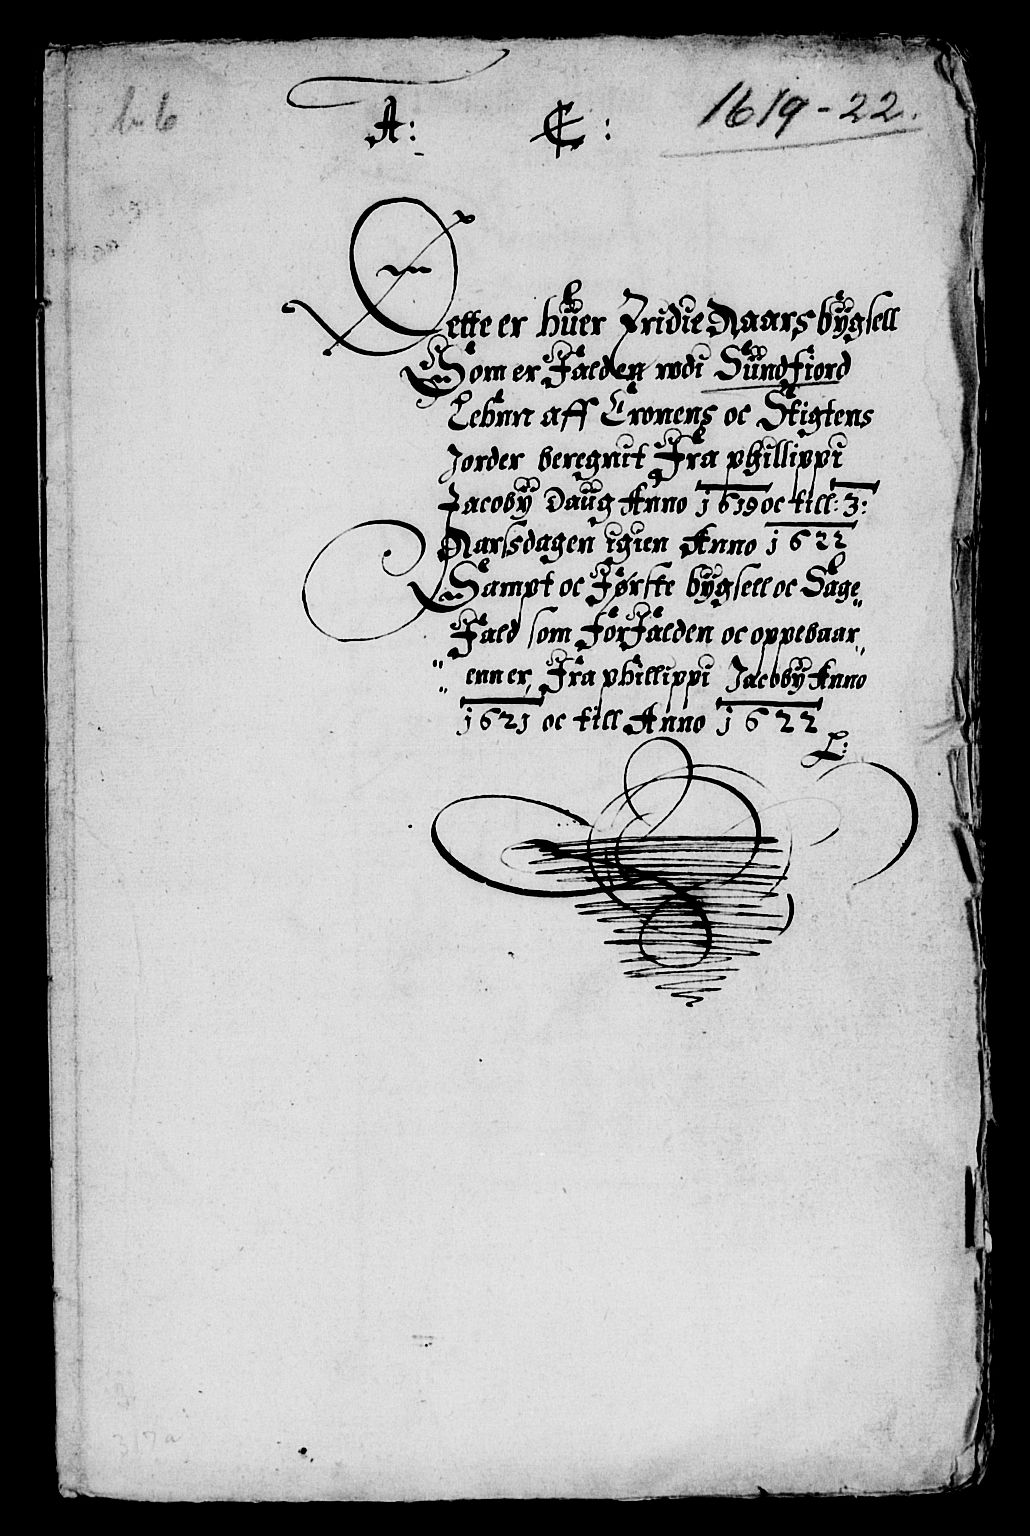 L. 6
1619-22.
A: C:
Dette er huer Tridie Aaars bÿgsell
Som er Falden wdi Sündfiord
Lehnn aff Cronens oc Stigtens
Jorder beregnit Fra phillippi
Jacobÿ Daüg Anno 1619 oc till: 3:
Aarssdagen igien Anno 1622
Sampt oc Første bÿgsell oc Sage„
Fald som ForFalden oc oppebaar„
„ enn er, Fra phillippi Jacobÿ Anno
1621 oc till Anno 1622
L:
317a